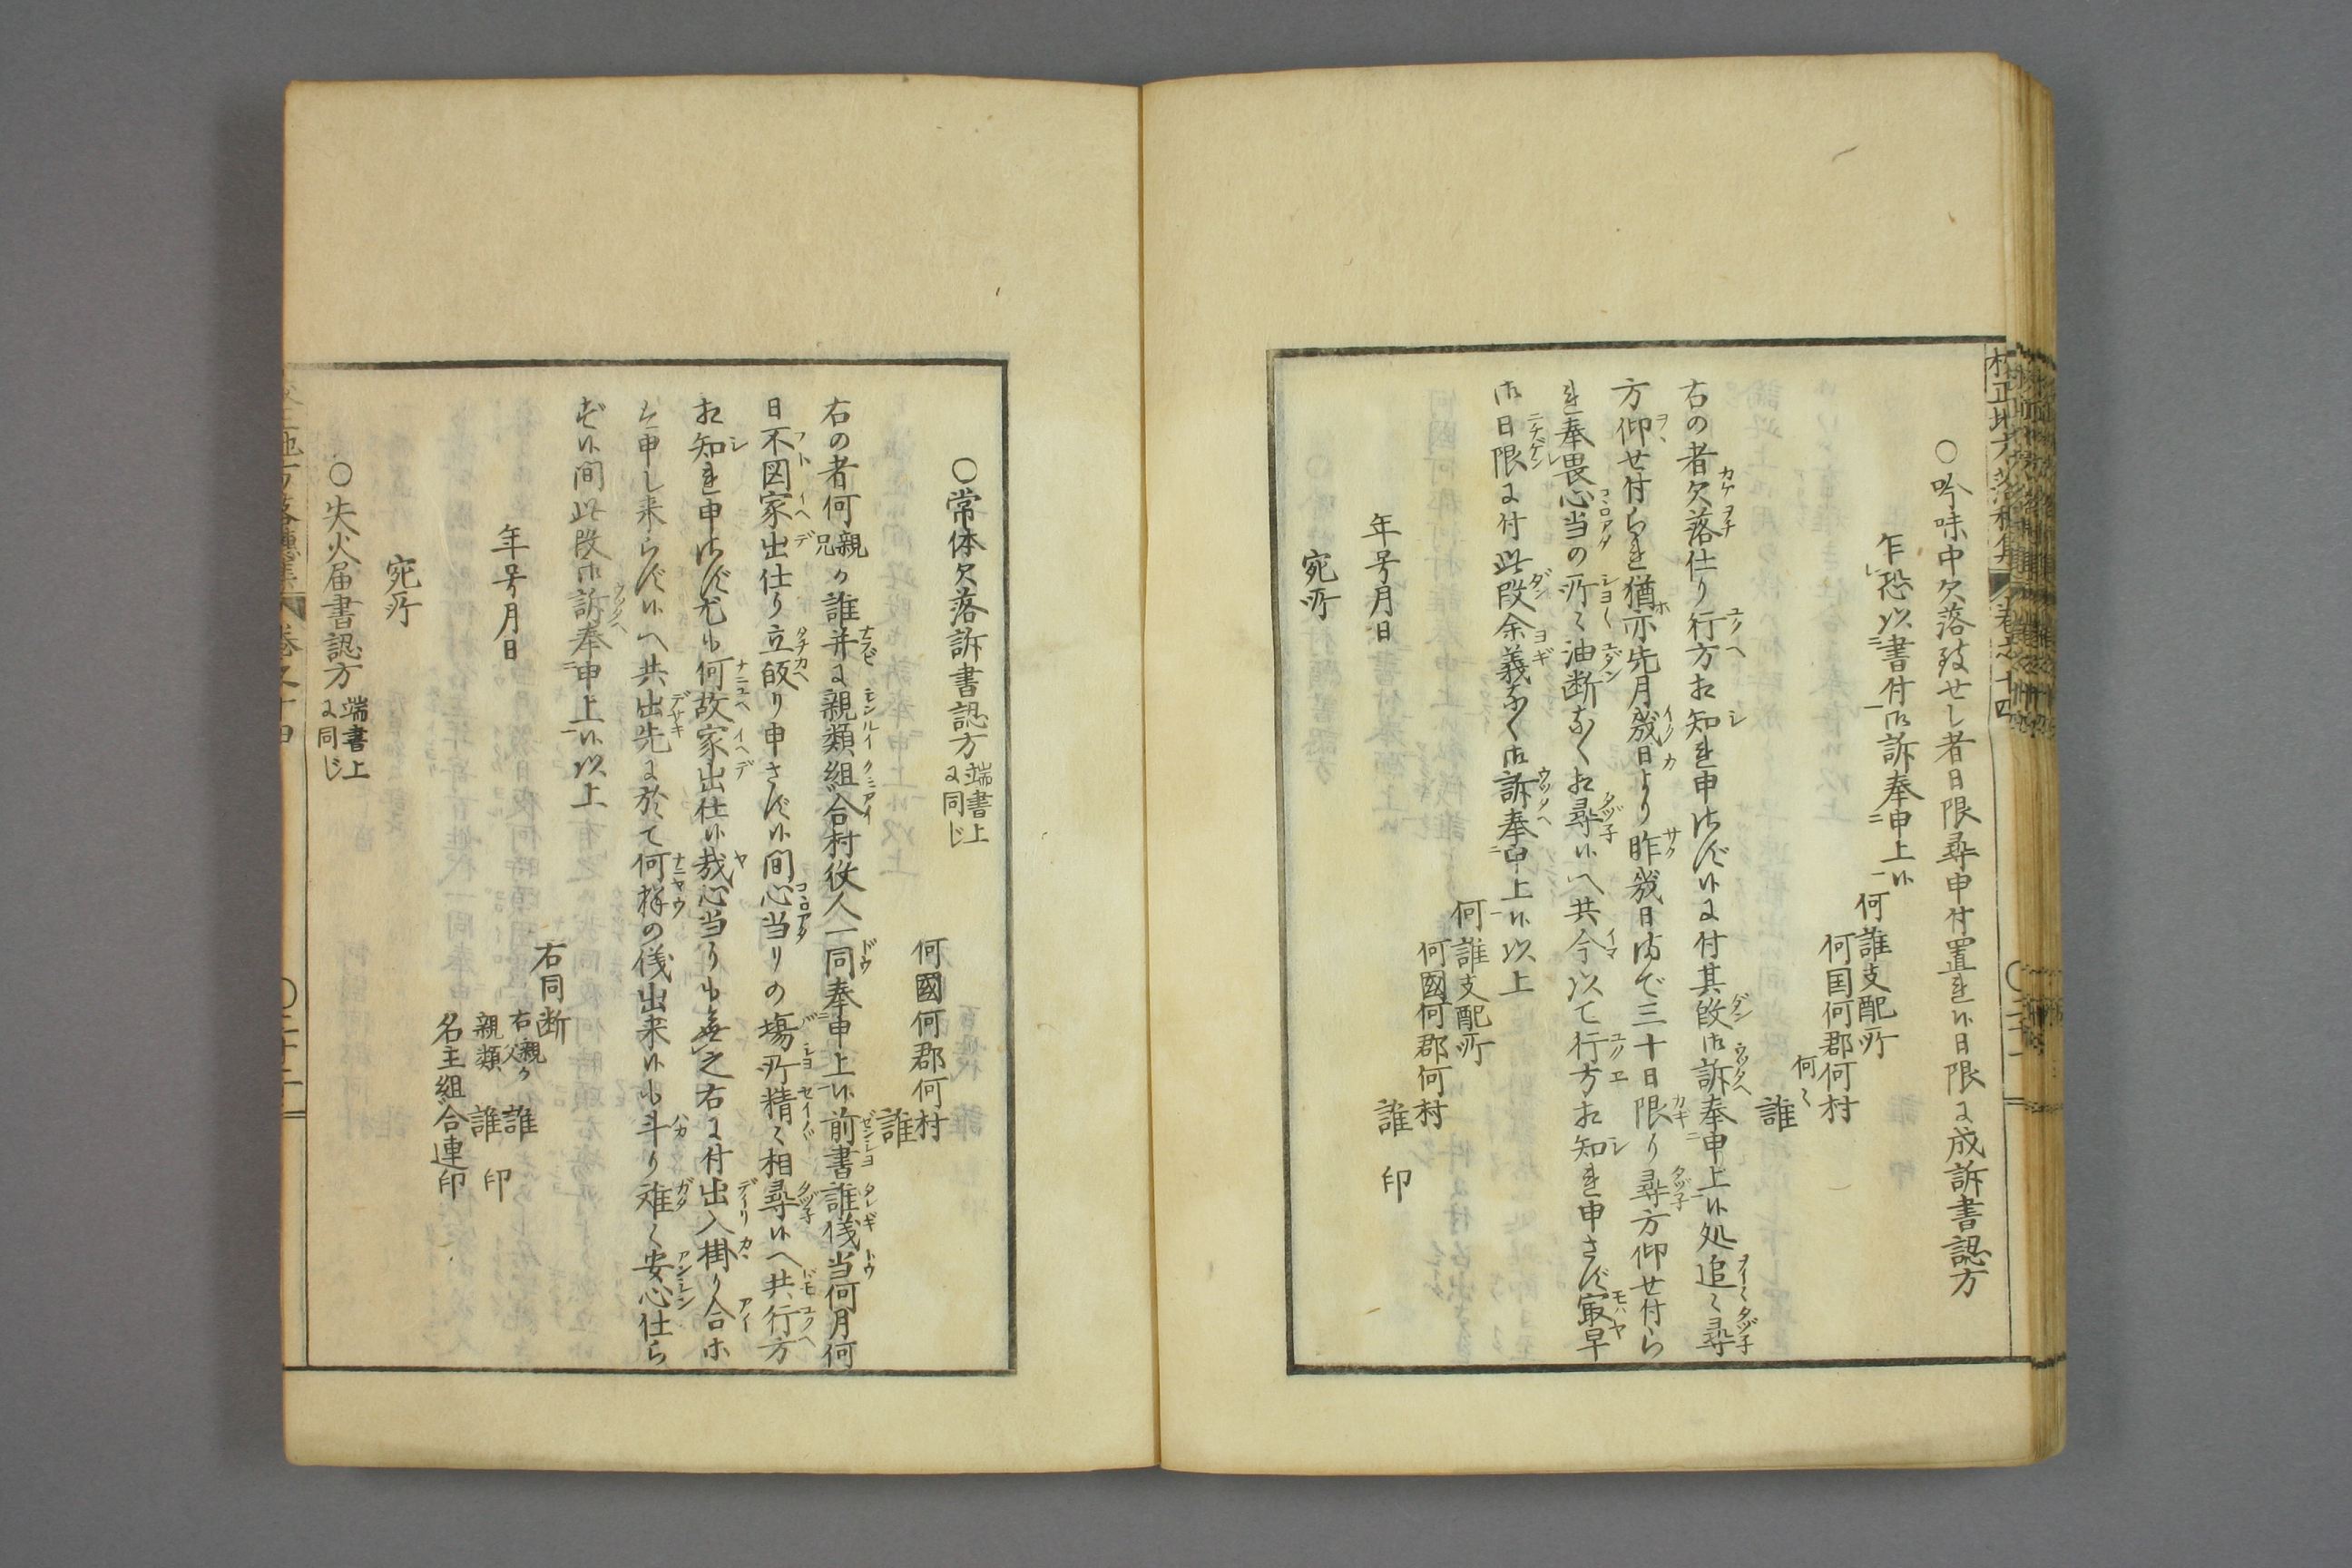 ○吟味中欠落致せし者日限尋申付置れ候日限に成訴書認方
乍恐以書付御訴奉申上候
何誰支配所
何国何郡何村
何々
誰
右の者欠落仕り行方相知れ申さず候に付其段御訴奉申上候処追々尋
方仰せ付られ猶亦先月幾日より昨幾日まで三十日限り尋方仰せ付ら
れ奉畏心当の所々油断なく相尋候へ共今以て行方相知れ申さず最早
御日限に付此段余義なく御訴奉申上候以上
何誰支配所
何國何郡何村
誰 印
年号月日
宛所
○常体欠落訴書認方 端書上に同じ
何國何郡何村
誰
右の者何親兄か誰并に親類組合村役人一同奉申上候前書誰儀当何月何
日不図家出仕り立皈り申さず候間心当りの場所精々相尋候へ共行方
相知れ申さず尤も何故家出仕候哉心当りも無之右に付出入掛り合ホ
は申し来らず候へ共出先に於て何様の儀出来候も斗り難く安心仕ら
ず候間此段御訴奉申上候以上
右同断
右親父か 誰
親類 誰 印
名主組合連印
年号月日
宛所
○失火届書認方 端書上に同じ